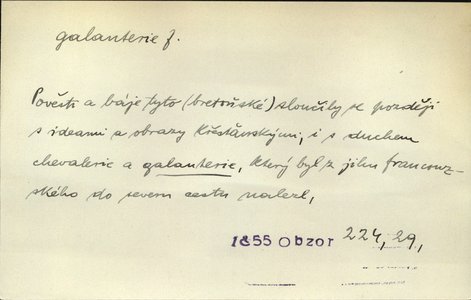 galanterie f.
Pověsti a báje tyto (bretoňské) sloučily se později
s ideami a obrazy křesťanskými, i s duchem
chevalerie a galanterie, který byl z jihu francouz-
ského do severu cestu nalezl,
1855 Obzor 224, 29,